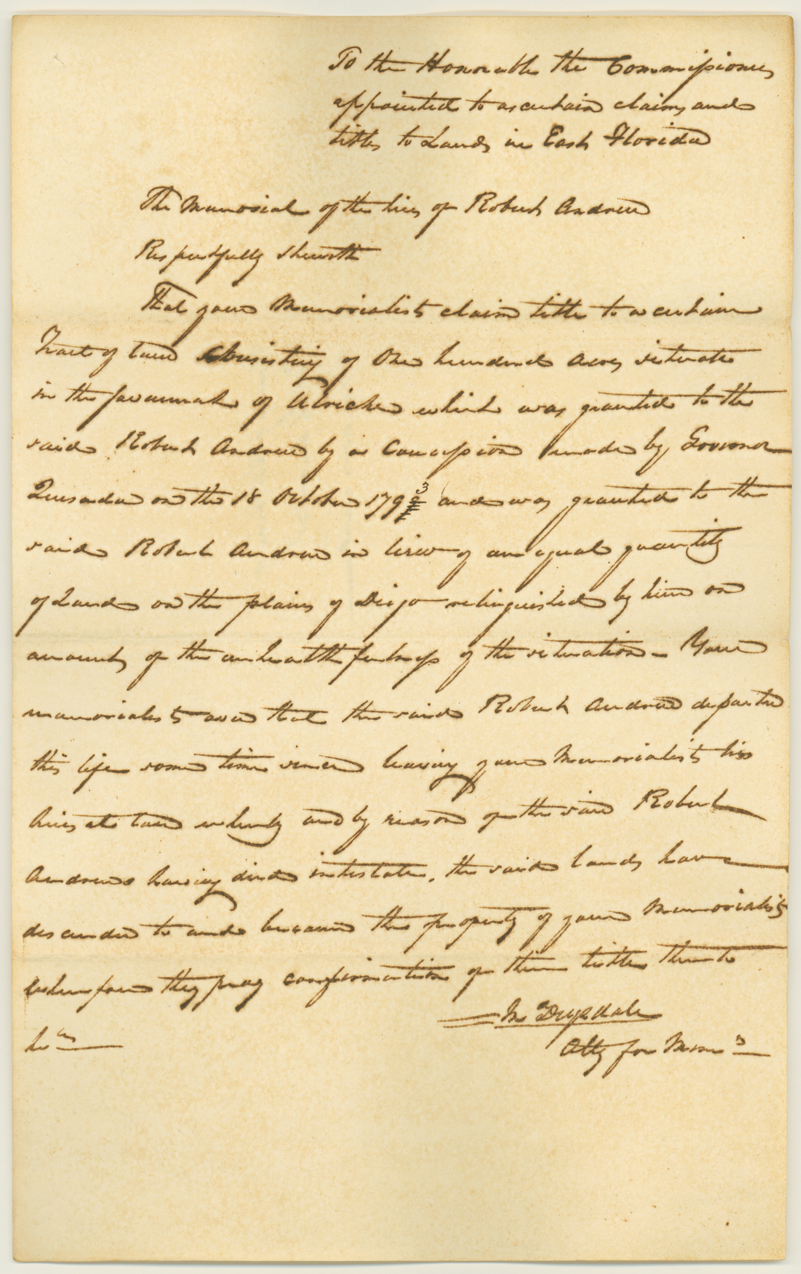 To the Honorable the Commissioners
appointed to ascertain claims and
titles to Lands in East Florida
The Memorial of the heirs of Robert Andrew
Respectfully sheweth
That your Memorialists claim title to a certain
Tract of land Consisting of One hundred Acres situate
in the savannah of which was granted to the
said Robert Andrew by a Concession made by Governor
Quesada on the 18 October 1793 and was granted to the
said Robert Andrew in lieu of an equal quantity
of Land on the plains of Diego relinquished by him on
account of the unhealthfulness of the situation - Your
memorialists aver that the said Robert Andrew departed
this life some time since leaving your Memorialists his
heirs at law whereby and by reason of the said Robert
Andrew having died intestate, the said lands have
descended to and became the property of your Memorialists
wherefore they pray confirmation of their titles thereto
Jno Drysdale
Atty for Mem